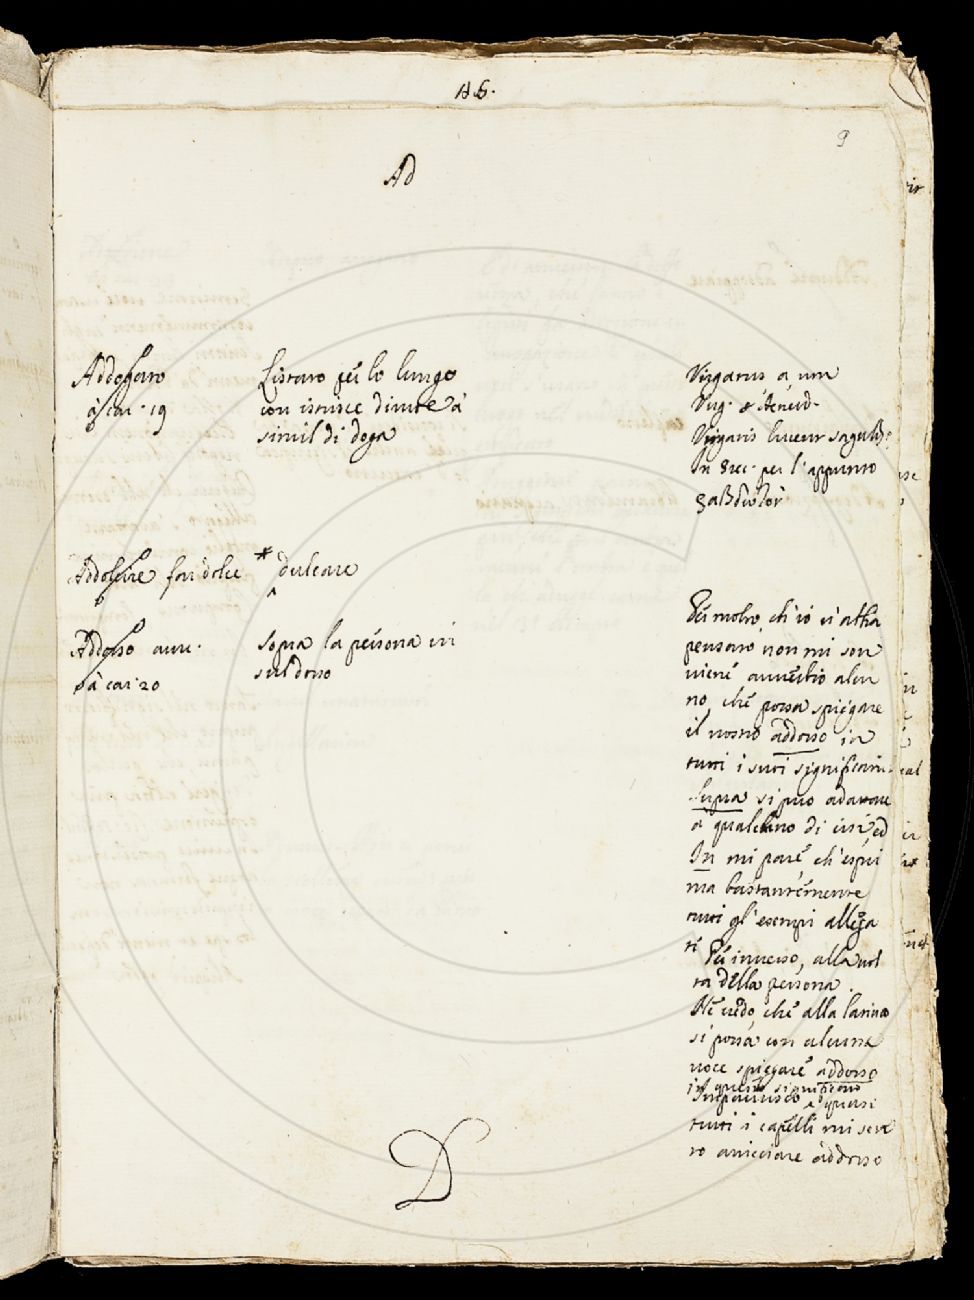 A.6.
9
Ad
Addogato
à car. 19
Listato per lo lungo
con istrisce diritte à
simil di doga
Virgatus a, um
Virg. 8 Æneid.
Virgatis lucent sagulis
in Grec. per l'appunto
Addolcire far dolce
* dulcare
Addosso auu.
à car: 20
Sopra la persona in
sul dosso
Per molto, ch'io ci abbia
pensato, non mi sou
uiene auuerbio alcu
no, che possa spiegare
il nostro addosso in
tutti i suoi significati.
Supra si può adattare
a qualcuno di essi, ed
In mi pare ch'espri
ma bastantemente
tutti gl'esempi allega
ti
Per inuerso, alla uol
ta della persona.
Ne credo, che alla latina
si possa con alcuna
uoce spiegare addosso
in questo significato
e quasi
tutti i capelli mi sen
to arricciare addosso
D